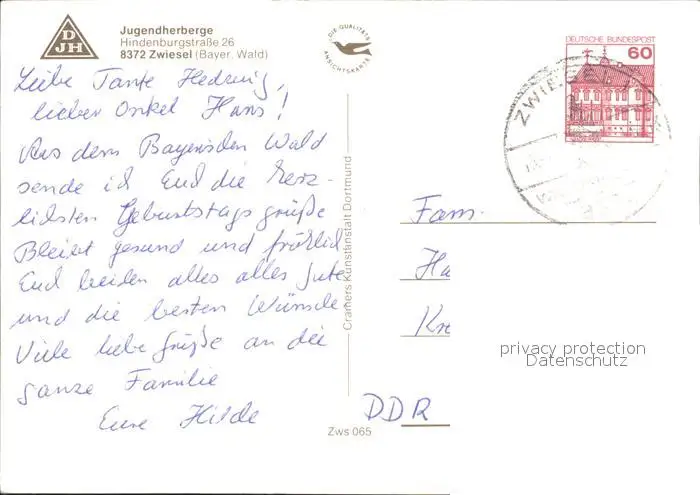 DJH
Jugendherberge
Hindenburgstraße 26
8372 Zwiesel (Bayer. Wald)
DIE QUALITÄTS
ANSICHTSKARTE
DEUTSCHE BUNDESPOST
60
ZWIESEL 1
Liebe Tante Hedwig,
lieber Onkel Hans!
Aus dem Bayerischen Wald
sende ich Euch die herz-
lichsten Geburtstagsgrüße
Bleibt gesund und fröhlich
Euch beiden alles alles Gute
und die besten Wünsche
Viele liebe Grüße an die
ganze Familie
Eure Hilde
Cramers Kunstanstalt Dortmund
Zws 065
Fam.
Ha
Kre
DDR
privacy protection
Datenschutz